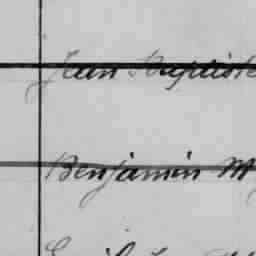 Jean Baptiste
Benjamin M